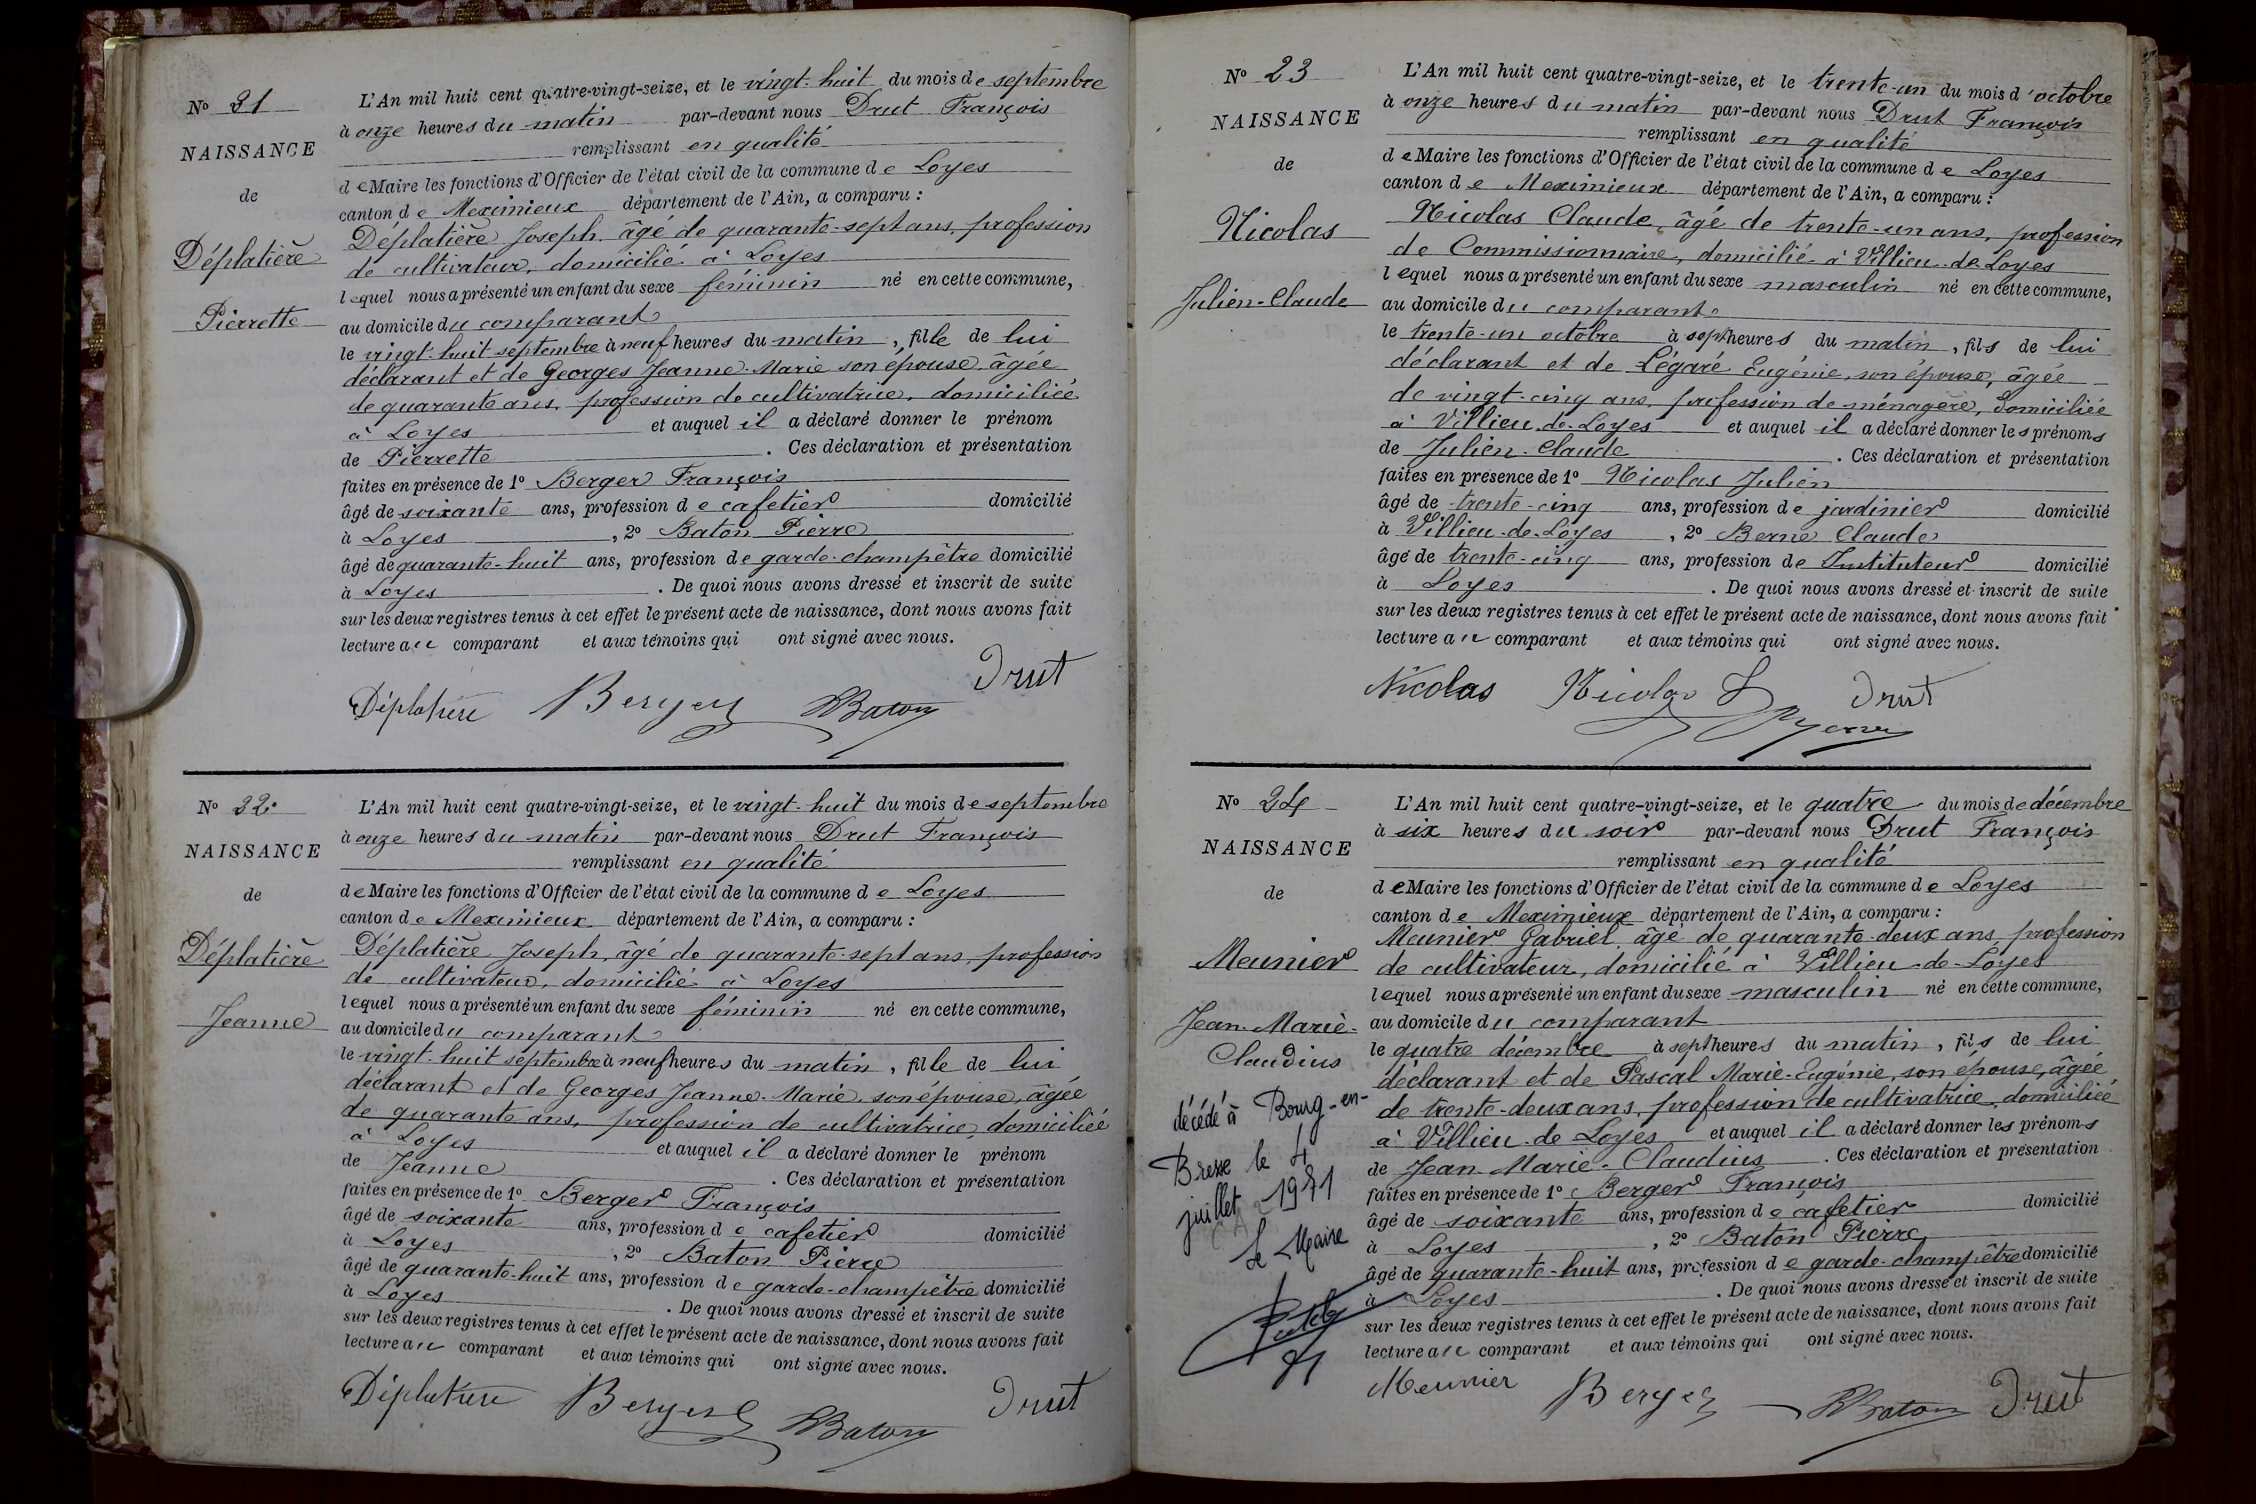 N° 21
NAISSANCE
de
Déplatière
Pierrette
L'An mil huit cent quatre-vingt-seize, et le vingt-huit du mois de septembre
à onze heures du matin par-devant nous Drut François
remplissant en qualité
de Maire les fonctions d'Officier de l'état civil de la commune de Loyes
canton de Meximieux département de l'Ain, a comparu :
Déplatière Joseph, âgé de quarante-sept ans, profession
de cultivateur, domicilié à Loyes
lequel nous a présenté un enfant du sexe féminin né en cette commune,
au domicile du comparant
le vingt-huit septembre à neuf heures du matin, fille de lui
déclarant et de Georges Jeanne-Marie son épouse, âgée
de quarante ans, profession de cultivatrice, domiciliée
à Loyes et auquel il a déclaré donner le prénom
de Pierrette . Ces déclaration et présentation
faites en présence de 1° Berger François
âgé de soixante ans, profession de cafetier domicilié
à Loyes , 2° Baton Pierre
âgé de quarante-huit ans, profession de garde-champêtre domicilié
à Loyes . De quoi nous avons dressé et inscrit de suite
sur les deux registres tenus à cet effet le présent acte de naissance, dont nous avons fait
lecture au comparant et aux témoins qui ont signé avec nous.
Drut
Déplatière Berger Baton
N° 22
NAISSANCE
de
Déplatière
Jeanne
L'An mil huit cent quatre-vingt-seize, et le vingt-huit du mois de septembre
à onze heures du matin par-devant nous Drut François
remplissant en qualité
de Maire les fonctions d'Officier de l'état civil de la commune de Loyes
canton de Meximieux département de l'Ain, a comparu :
Déplatière Joseph, âgé de quarante-sept ans, profession
de cultivateur, domicilié à Loyes
lequel nous a présenté un enfant du sexe féminin né en cette commune,
au domicile du comparant
le vingt-huit septembre à neuf heures du matin, fille de lui
déclarant et de Georges Jeanne-Marie, son épouse, âgée
de quarante ans, profession de cultivatrice, domiciliée
à Loyes et auquel il a déclaré donner le prénom
de Jeanne . Ces déclaration et présentation
faites en présence de 1° Berger François
âgé de soixante ans, profession de cafetier domicilié
à Loyes , 2° Baton Pierre
âgé de quarante-huit ans, profession de garde-champêtre domicilié
à Loyes . De quoi nous avons dressé et inscrit de suite
sur les deux registres tenus à cet effet le présent acte de naissance, dont nous avons fait
lecture au comparant et aux témoins qui ont signé avec nous.
Déplatière Berger Baton Drut
N° 23
NAISSANCE
de
Nicolas
Julien-Claude
L'An mil huit cent quatre-vingt-seize, et le trente-un du mois d'octobre
à onze heures du matin par-devant nous Drut François
remplissant en qualité
de Maire les fonctions d'Officier de l'état civil de la commune de Loyes
canton de Meximieux département de l'Ain, a comparu :
Nicolas Claude, âgé de trente-un ans, profession
de Commissionnaire, domicilié à Villieu-de-Loyes
lequel nous a présenté un enfant du sexe masculin né en cette commune,
au domicile du comparant
le trente-un octobre à sept heures du matin, fils de lui
déclarant et de Légaré Eugénie, son épouse, âgée
de vingt-cinq ans, profession de ménagère, domiciliée
à Villieu-de-Loyes et auquel il a déclaré donner les prénoms
de Julien-Claude . Ces déclaration et présentation
faites en présence de 1° Nicolas Julien
âgé de trente-cinq ans, profession de jardinier domicilié
à Villieu-de-Loyes , 2° Berne Claude
âgé de trente-cinq ans, profession de Instituteur domicilié
à Loyes . De quoi nous avons dressé et inscrit de suite
sur les deux registres tenus à cet effet le présent acte de naissance, dont nous avons fait
lecture au comparant et aux témoins qui ont signé avec nous.
Nicolas Nicolas J Drut
Berne
N° 24
NAISSANCE
de
Meunier
Jean-Marie-
Claudius
décédé à Bourg-en-
Bresse le 4
juillet 1971
le Maire
L'An mil huit cent quatre-vingt-seize, et le quatre du mois de décembre
à six heures du soir par-devant nous Drut François
remplissant en qualité
de Maire les fonctions d'Officier de l'état civil de la commune de Loyes
canton de Meximieux département de l'Ain, a comparu :
Meunier Gabriel, âgé de quarante-deux ans, profession
de cultivateur, domicilié à Villieu-de-Loyes
lequel nous a présenté un enfant du sexe masculin né en cette commune,
au domicile du comparant
le quatre décembre à sept heures du matin, fils de lui
déclarant et de Pascal Marie-Eugénie, son épouse, âgée
de trente-deux ans, profession de cultivatrice, domiciliée
à Villieu-de-Loyes et auquel il a déclaré donner les prénoms
de Jean-Marie-Claudius . Ces déclaration et présentation
faites en présence de 1° Berger François
âgé de soixante ans, profession de cafetier domicilié
à Loyes , 2° Baton Pierre
âgé de quarante-huit ans, profession de garde-champêtre domicilié
à Loyes . De quoi nous avons dressé et inscrit de suite
sur les deux registres tenus à cet effet le présent acte de naissance, dont nous avons fait
lecture au comparant et aux témoins qui ont signé avec nous.
Meunier Berger Baton Drut